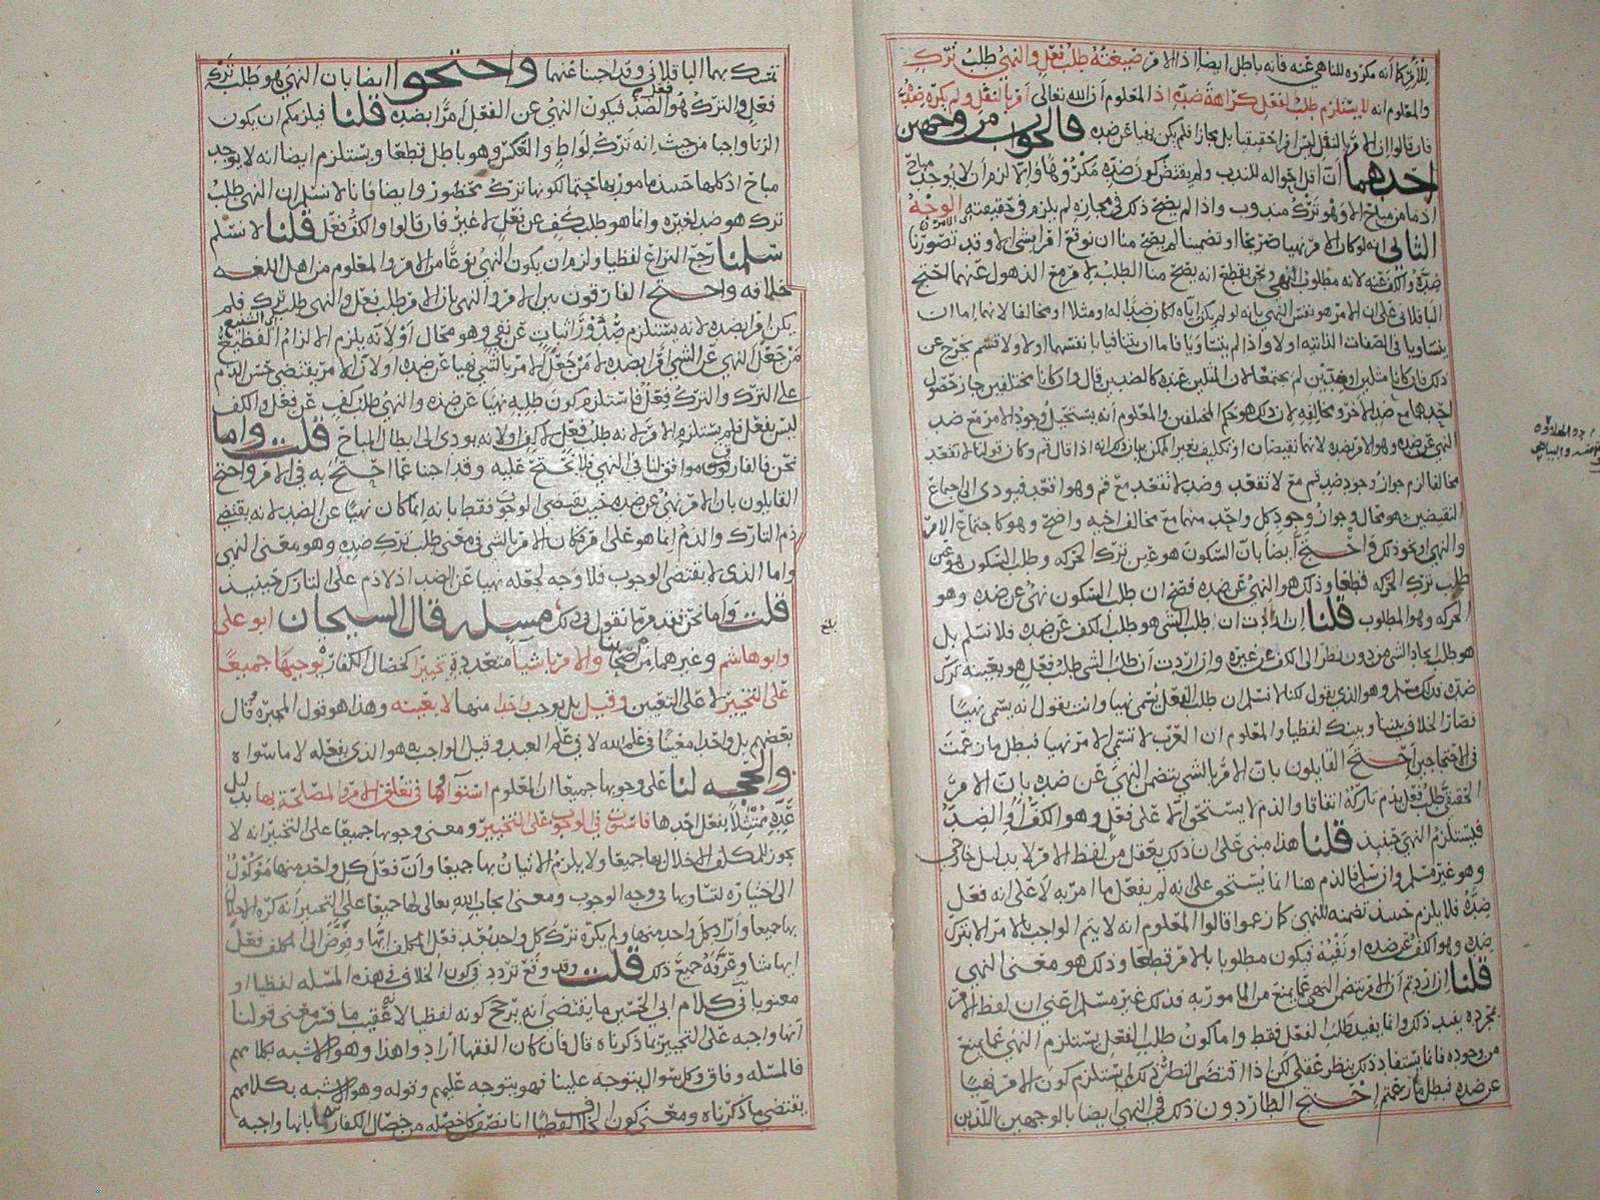 للأمر كما أنه مكروه للناهي عنه فانه باطل ايضا اذ الامر صيغته طلب فعل والنهي طلب ترك
والمعلوم انه لا يستلزم طلب الفعل كراهة ضده اذ المعلوم أن الله تعالى أمر بالنفل ولم يكره ضده
فان قالوا ان الامر بالنفل ليس امرا حقيقيا بل مجازا فلم يكن نهيا عن ضده فالجواب من وجهين
احدهما أن اقل احواله للندب ولم يقتض كون ضده مكروها والا لزم ان لا يوجد مباح
اذ ما من مباح الا وهو ترك مندوب واذا لم يصح ذلك في مجازه لم يلزم في حقيقته الوجه
الثاني انه لو كان الامر نهيا صريحا او تضمينا لم يصح منا ان نوقع امرا بشي الا وقد تصورنا
ضده والكف عنه لانه مطلوب النهي ونحن نقطع انه يصح منا الطلب للامر مع الذهول عنهما احتج
الباقلاني على ان الامر هو نفس النهي بانه لو لم يكن اياه لكان ضدا له او مثلا او مخالفا لانهما إما ان
يتساويا في الصفات الذاتية اولا واذا لم يتساويا فاما ان يتنافيا بانفسهما اولا ولا قسم يخرج عن
ذلك فان كانا مثلين او ضدين لم يجتمعا لان المثلين عنده كالضدين قال وان كانا مختلفين جاز حصول
احدهما مع ضد الاخر ومخالفه لان ذلك هو حكم المختلفين والمعلوم أنه يستحيل وجود الامر مع ضد
النهي عن ضده وهو الامر بضده لانهما نقيضان او تكليف بغير الممكن بيان ذلك انه اذا قال قم وكان قولنا لا تقعد
مخالفا لزم جواز وجود ضد قم مع لا تقعد وضد لا تقعد مع قم وهو اقعد فيودي الى اجماع
النقيضين وهو محال وجواز وجود كل واحد منهما مع مخالف اخيه واضح وهو كاجتماع الامر
والنهي او نحو ذلك واحتج أيضا بأن السكون هو عين ترك الحركه وطلب السكون هو عين
طلب ترك الحركه قطعا وذلك هو النهي عن ضده فصح ان طلب السكون نهي عن ضده وهو
الحركه وهو المطلوب قلنا ان اردت ان طلب الشي هو طلب الكف عن ضده فلا نسلم بل
هو طلب ايجاد الشي من دون نظر الى الكف عن غيره وان اردت أن طلب الشي طلب فعل هو بعينه ترك
ضده فذلك مسلم وهو الذي نقول لكنا لا نسلم ان طلب الفعل يسمى نهيا وانت تقول انه يسمى نهيا
فصار الخلاف بيننا وبينك لفظيا والمعلوم ان العرب لا تسمي الامر نهيا فبطل ما زعمت
في الاحتجاجين احتج القايلون بان الامر بالشي يتضمن النهي عن ضده بان الامر
الحقيقي طلب فعل يذم تاركه اتفاقا والذم لا يستحق الا على فعل وهو الكف او الضد
فيستلزم النهي حينيذ قلنا هذا مبني على ان ذلك يعقل من لفظ الامر لا بدليل خارجي
وهو غير مسلم وان سلم فالذم هنا انما يستحق على انه لم يفعل ما امر به لا على انه فعل
ضده فلا يلزم حينيذ تضمنه للنهي كما زعموا قالوا المعلوم انه لا يتم الواجب بالامر الا بترك
ضده وهو الكف عن ضده او نفيه فيكون مطلوبا بالامر قطعا وذلك هو معنى النهي
قلنا ان اردتم أن الامر يتضمن النهي عما يمنع من المامور به فذلك غير مسلم اعني ان لفظ الامر
بمجرده يفيد ذلك وانما يفيد طلب الفعل فقط واما كون طلب الفعل يستلزم النهي عما يمنع
من وجوده فانما يستفاد ذلك بنظر عقلي لكن اذا اقتضى النظر ذلك لم يستلزم كون الامر نهيا
عن ضده فبطل ما زعمتم احتج الطاردون ذلك في النهي ايضا بالوجهين اللذين
تمسك بهما الباقلاني وقد اجبنا عنهما واحتجوا ايضا بان النهي هو طلب ترك
فعل والترك هو فعل الضد فيكون النهي عن الفعل أمرا بضده قلنا فيلزمكم ان يكون
الزنا واجبا من حيث انه ترك لواط والعكس وهو باطل قطعا ويستلزم ايضا انه لا يوجد
مباح اذ كلها حينيذ مامور بها حتما لكونها ترك محظور وايضا فانا لا نسلم ان النهي طلب
ترك هو ضد لغيره وانما هو طلب كف عن فعل لا غير فان قالوا والكف فعل قلنا لا نسلم
سلمنا رجع النزاع لفظيا ولزم ان يكون النهي نوعا من الامر والمعلوم من اهل اللغه
خلافه واحتج الفارقون بين الامر والنهي بان الامر طلب فعل والنهي طلب ترك فلم
يكن امرا بضده لانه يستلزم صدور اثبات عن نفي وهو محال او لانه يلزم الالزام الفظيع الشنيع
من جعل النهي عن الشي أمرا بضده لا من جعل الامر بالشي نهيا عن ضده او لان الامر يقتضي حسن الذم
على الترك والترك فعل فاستلزم كون طلبه نهيا عن ضده والنهي طلب كف عن فعل والكف
ليس بفعل فلم يستلزم الامر لانه طلب فعل لا كف او لانه يودي الى ابطال المباح قلت واما
نحن فالفارقون موافقون لنا في النهي فلا نحتج عليه وقد اجبنا عما احتج به في الامر واحتج
القايلون بان الامر نهي عن ضده حيث يقتضي الوجوب فقط بانه انما كان نهيا عن الضد لانه يقتضي
ذم التارك والذم انما هو على امر فكان الامر بالشي في معنى طلب ترك ضده وهو معنى النهي
واما الذي لا يقتضي الوجوب فلا وجه لجعله نهيا عن الضد اذ لا ذم على التارك حينيذ
قلت وأما نحن فقد مر ما نقول في ذلك مسله قال الشيخان ابو علي
وابو هاشم وغيرهما من اصحابنا والامر باشيا متعددة تخييرا كخصال الكفارة يوجبها جميعا
على التخيير لا على التعيين وقيل بل يوجب واحدا منها لا بعينه وهذا هو قول المجبره وقال
بعضهم بل واحدا معينا في علم الله لا في علم العبد وقيل الواجب هو الذي يفعله لا ما سواه
والحجه لنا على وجوبها جميعا ان المعلوم استواؤها في تعلق الامر والمصلحة بها بدليل
عده ممتثلا بفعل احدها فاستوت في الوجوب على التخيير ومعنى وجوبها جميعا على التخيير انه لا
يجوز للمكلف الاخلال بها جميعا ولا يلزم الاتيان بها جميعا وأن فعل كل واحد منها موكول
الى اختياره لتساويها في وجه الوجوب ومعنى ايجاب الله تعالى لها جميعا على التخيير أنه كره الاخلال
بها جميعا وأراد كل واحد منها ولم يكره ترك كل واحد بعد فعل المكلف ايها وفوض الى المكلف فعل
ايها شا وعرفه جميع ذلك قلت وقد وقع تردد في كون الخلاف في هذه المسله لفظيا او
معنويا ففي كلام ابي الحسين ما يقتضي أنه يرجح كونه لفظيا لانه عقيب ما فسر معنى قولنا
أنها واجبه على التخيير بما ذكرناه قال فان كان الفقها ارادوا هذا وهو الاشبه بكلامهم
فالمسله وفاق وكل سوال يتوجه علينا فهو يتوجه عليهم وقوله وهو الاشبه بكلامهم
يقتضي ما ذكرناه ومعنى كون الخلاف لفظيا انا نصف كل خصله من خصال الكفارة بانها واجبه
بلغ